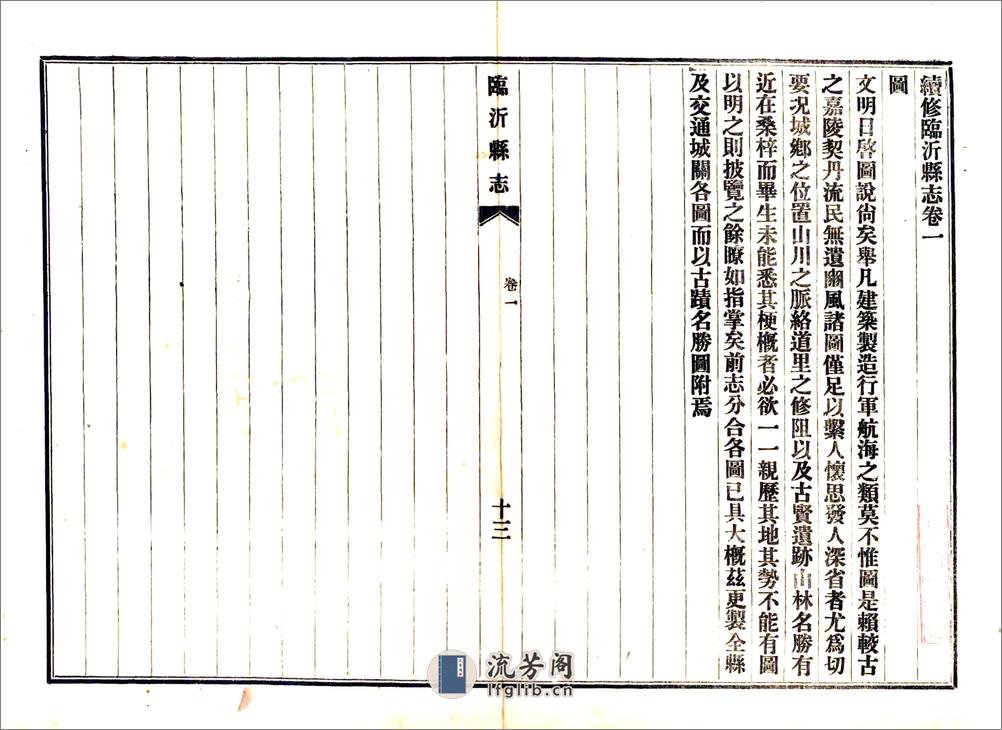 續修臨沂縣志卷一
圖
文明日啓圖說尙矣舉凡建築製造行軍航海之類莫不惟圖是賴較古
之嘉陵契丹流民無遺豳風諸圖僅足以繫人懷思發人深省者尤爲切
要況城鄉之位置山川之脈絡道里之修阻以及古賢遺跡山林名勝有
近在桑梓而畢生未能悉其梗概者必欲一一親歷其地其勢不能有圖
以明之則披覽之餘瞭如指掌矣前志分合各圖已具大概茲更製全縣
及交通城關各圖而以古蹟名勝圖附焉
臨沂縣志
卷一
十三
流芳阁
lfglib.cn